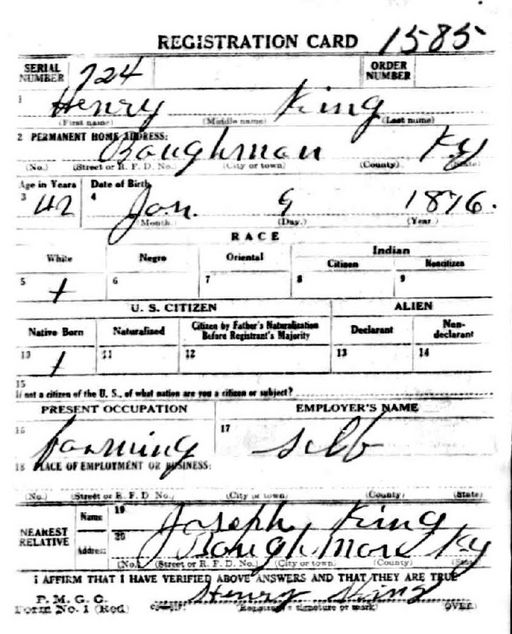 REGISTRATION CARD 1585
SERIAL NUMBER 724 ORDER NUMBER
1 Henry King
(First name) (Middle name) (Last name)
2 PERMANENT HOME ADDRESS:
Baughman Ky
(No.) (Street or R. F. D. No.) (City or town) (County) (State)
Age in Years Date of Birth
3 42 4 Jan. 9 1876.
(Month.) (Day.) (Year.)
RACE
White Negro Oriental Indian
Citizen Noncitizen
5 + 6 7 8 9
U. S. CITIZEN ALIEN
Native Born Naturalized Citizen by Father's Naturalization Before Registrant's Majority Declarant Non-declarant
10 + 11 12 13 14
15
If not a citizen of the U. S., of what nation are you a citizen or subject?
PRESENT OCCUPATION EMPLOYER'S NAME
16 farming 17 self
18 PLACE OF EMPLOYMENT OR BUSINESS:
(No.) (Street or R. F. D. No.) (City or town) (County) (State)
NEAREST RELATIVE
Name 19 Joseph King
Address 20 Baughman Ky
(No.) (Street or R. F. D. No.) (City or town) (County) (State)
I AFFIRM THAT I HAVE VERIFIED ABOVE ANSWERS AND THAT THEY ARE TRUE
P. M. G. O.
Form No. 1 (Red) Henry King
(Registrant's signature or mark) (OVER)